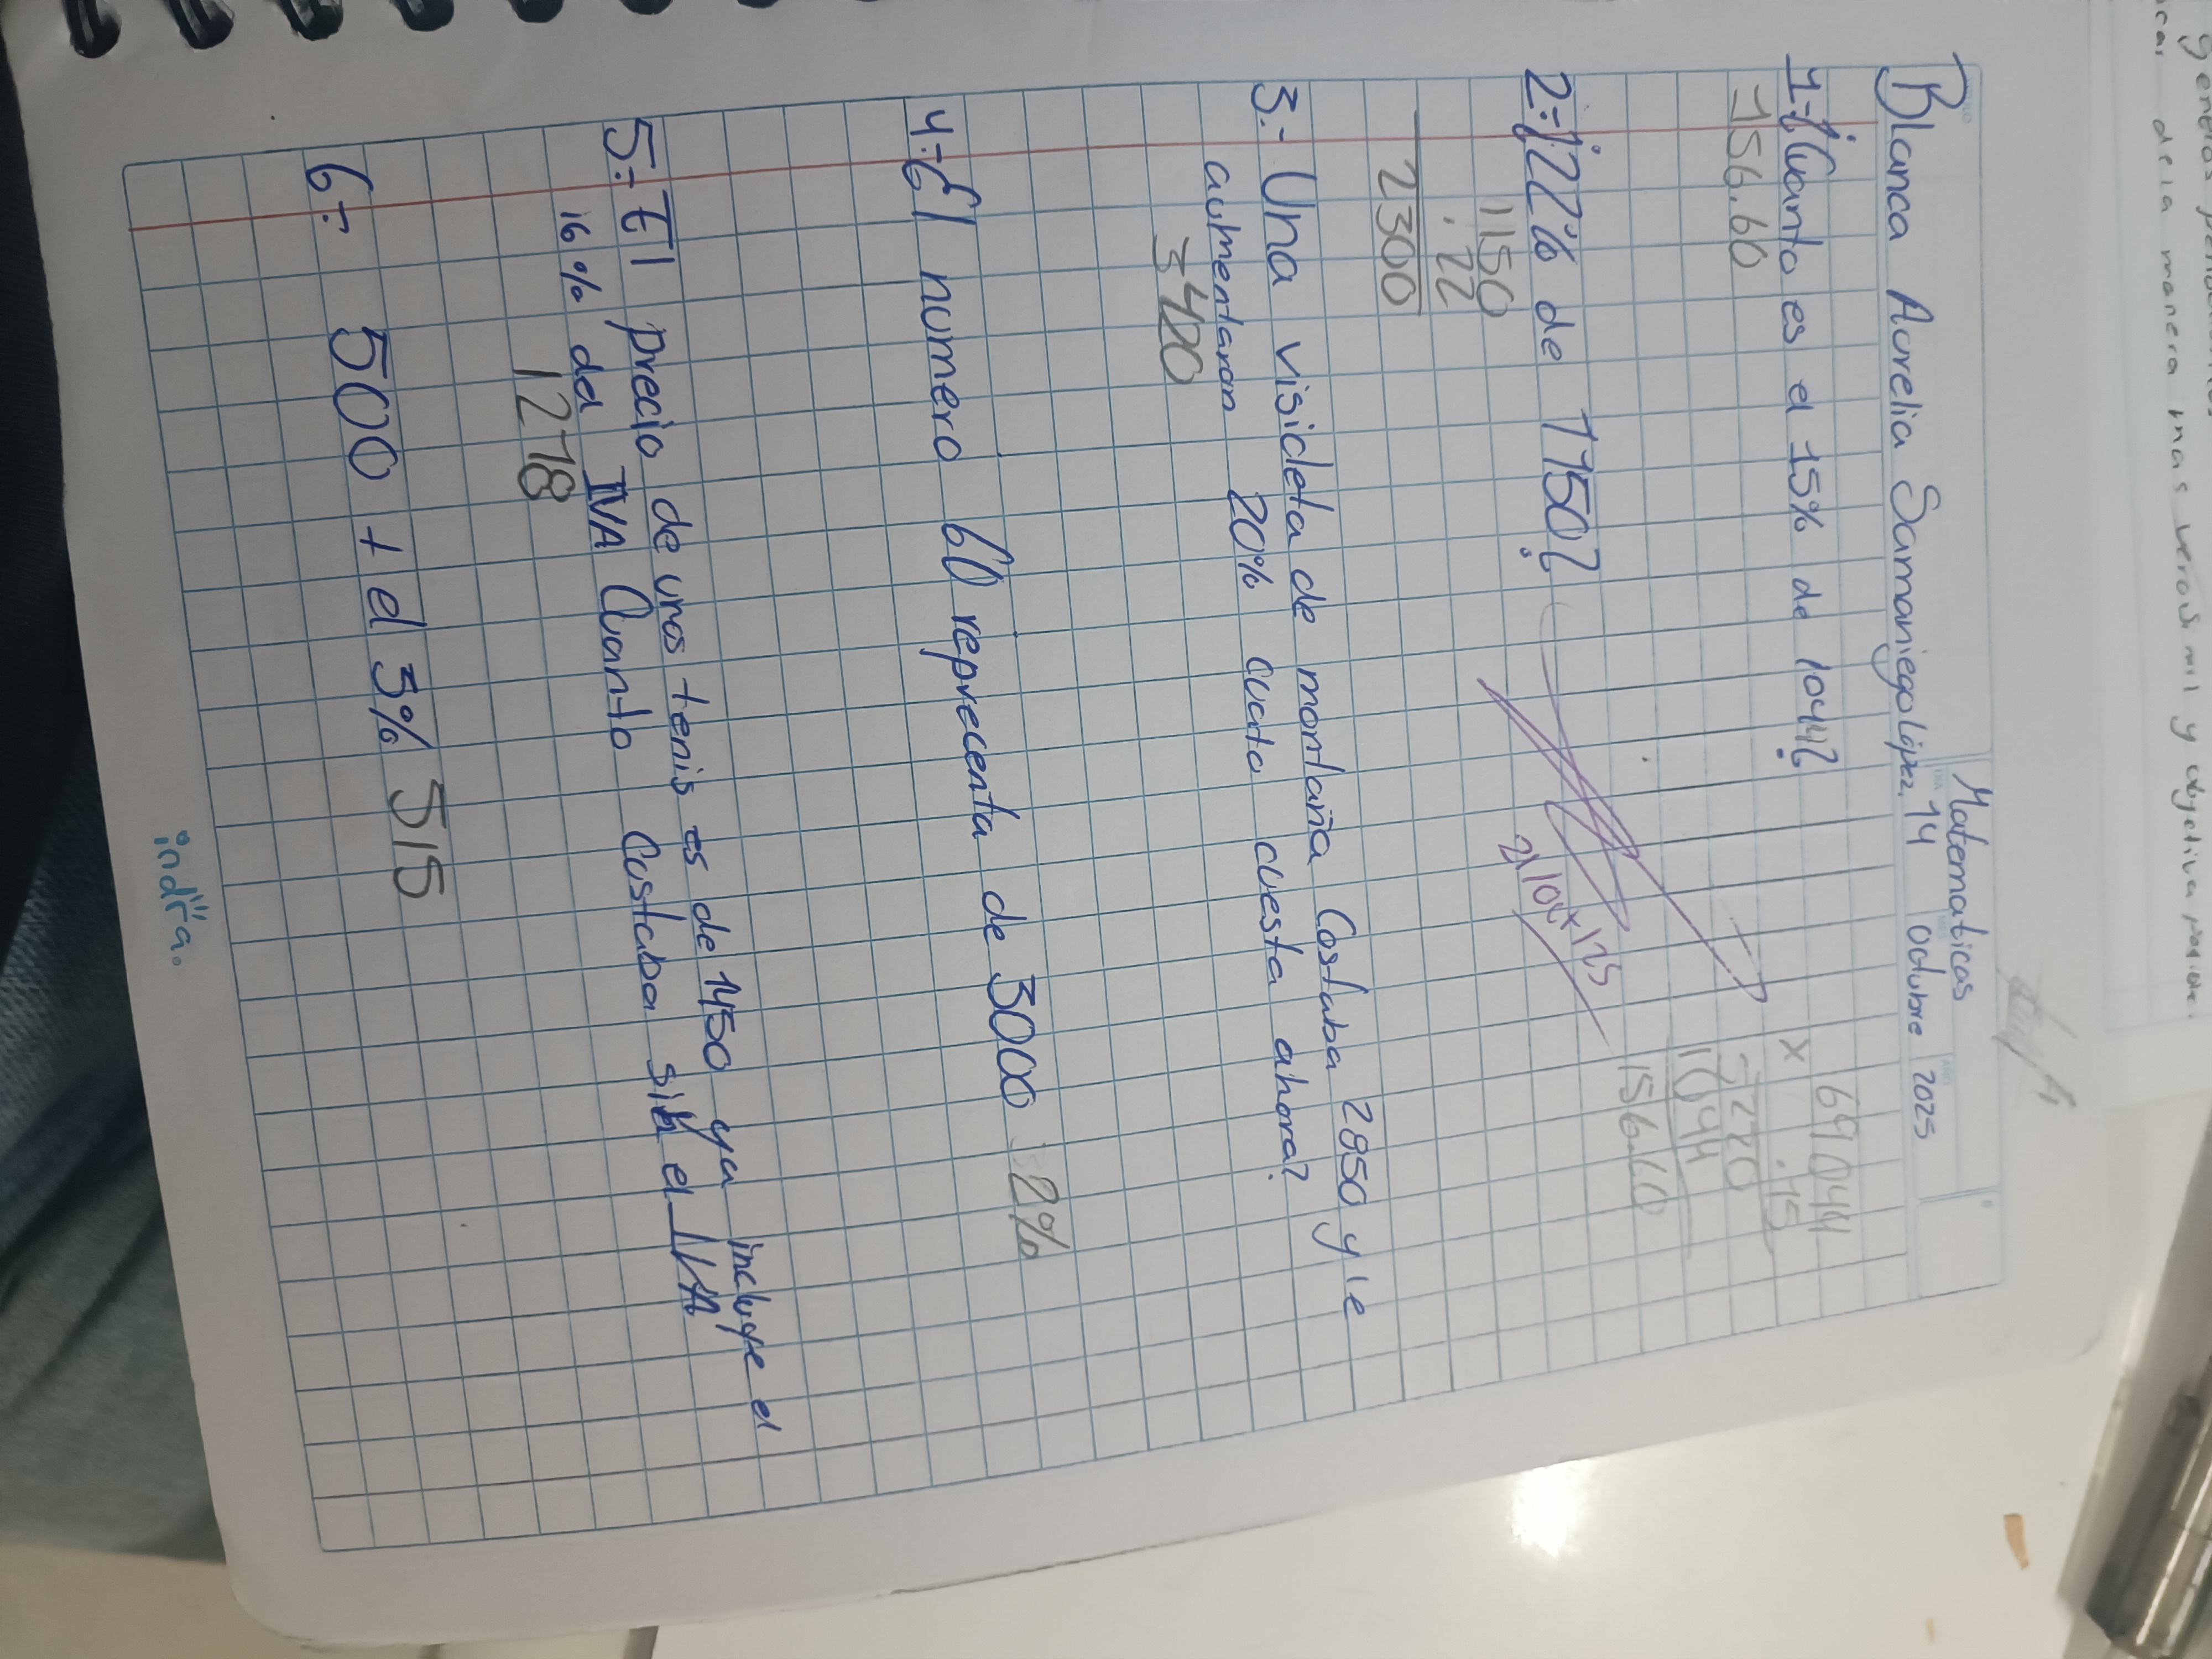 generos
car de la manera mas verosimil y objetiva
Matematicas
Blanca Aurelia Samaniego López. 14 Octubre 2025
1.- ¿Cuanto es el 15% de 1044?
156.60
1044
x .15
5220
1044
156.60
2.- ¿22% de 1150?
1150
.22
2300
3.- Una visicleta de montaña Costaba 2850 y le
aumentaron 20% cuato cuesta ahora?
3400
4.- El numero 60 reprecenta de 3000 2%
5.- El precio de unos tenis es de 1450 ya incluye el
16% del IVA Cuanto Costaba sin el IVA
1218
6.- 500 + el 3% 515
indra.